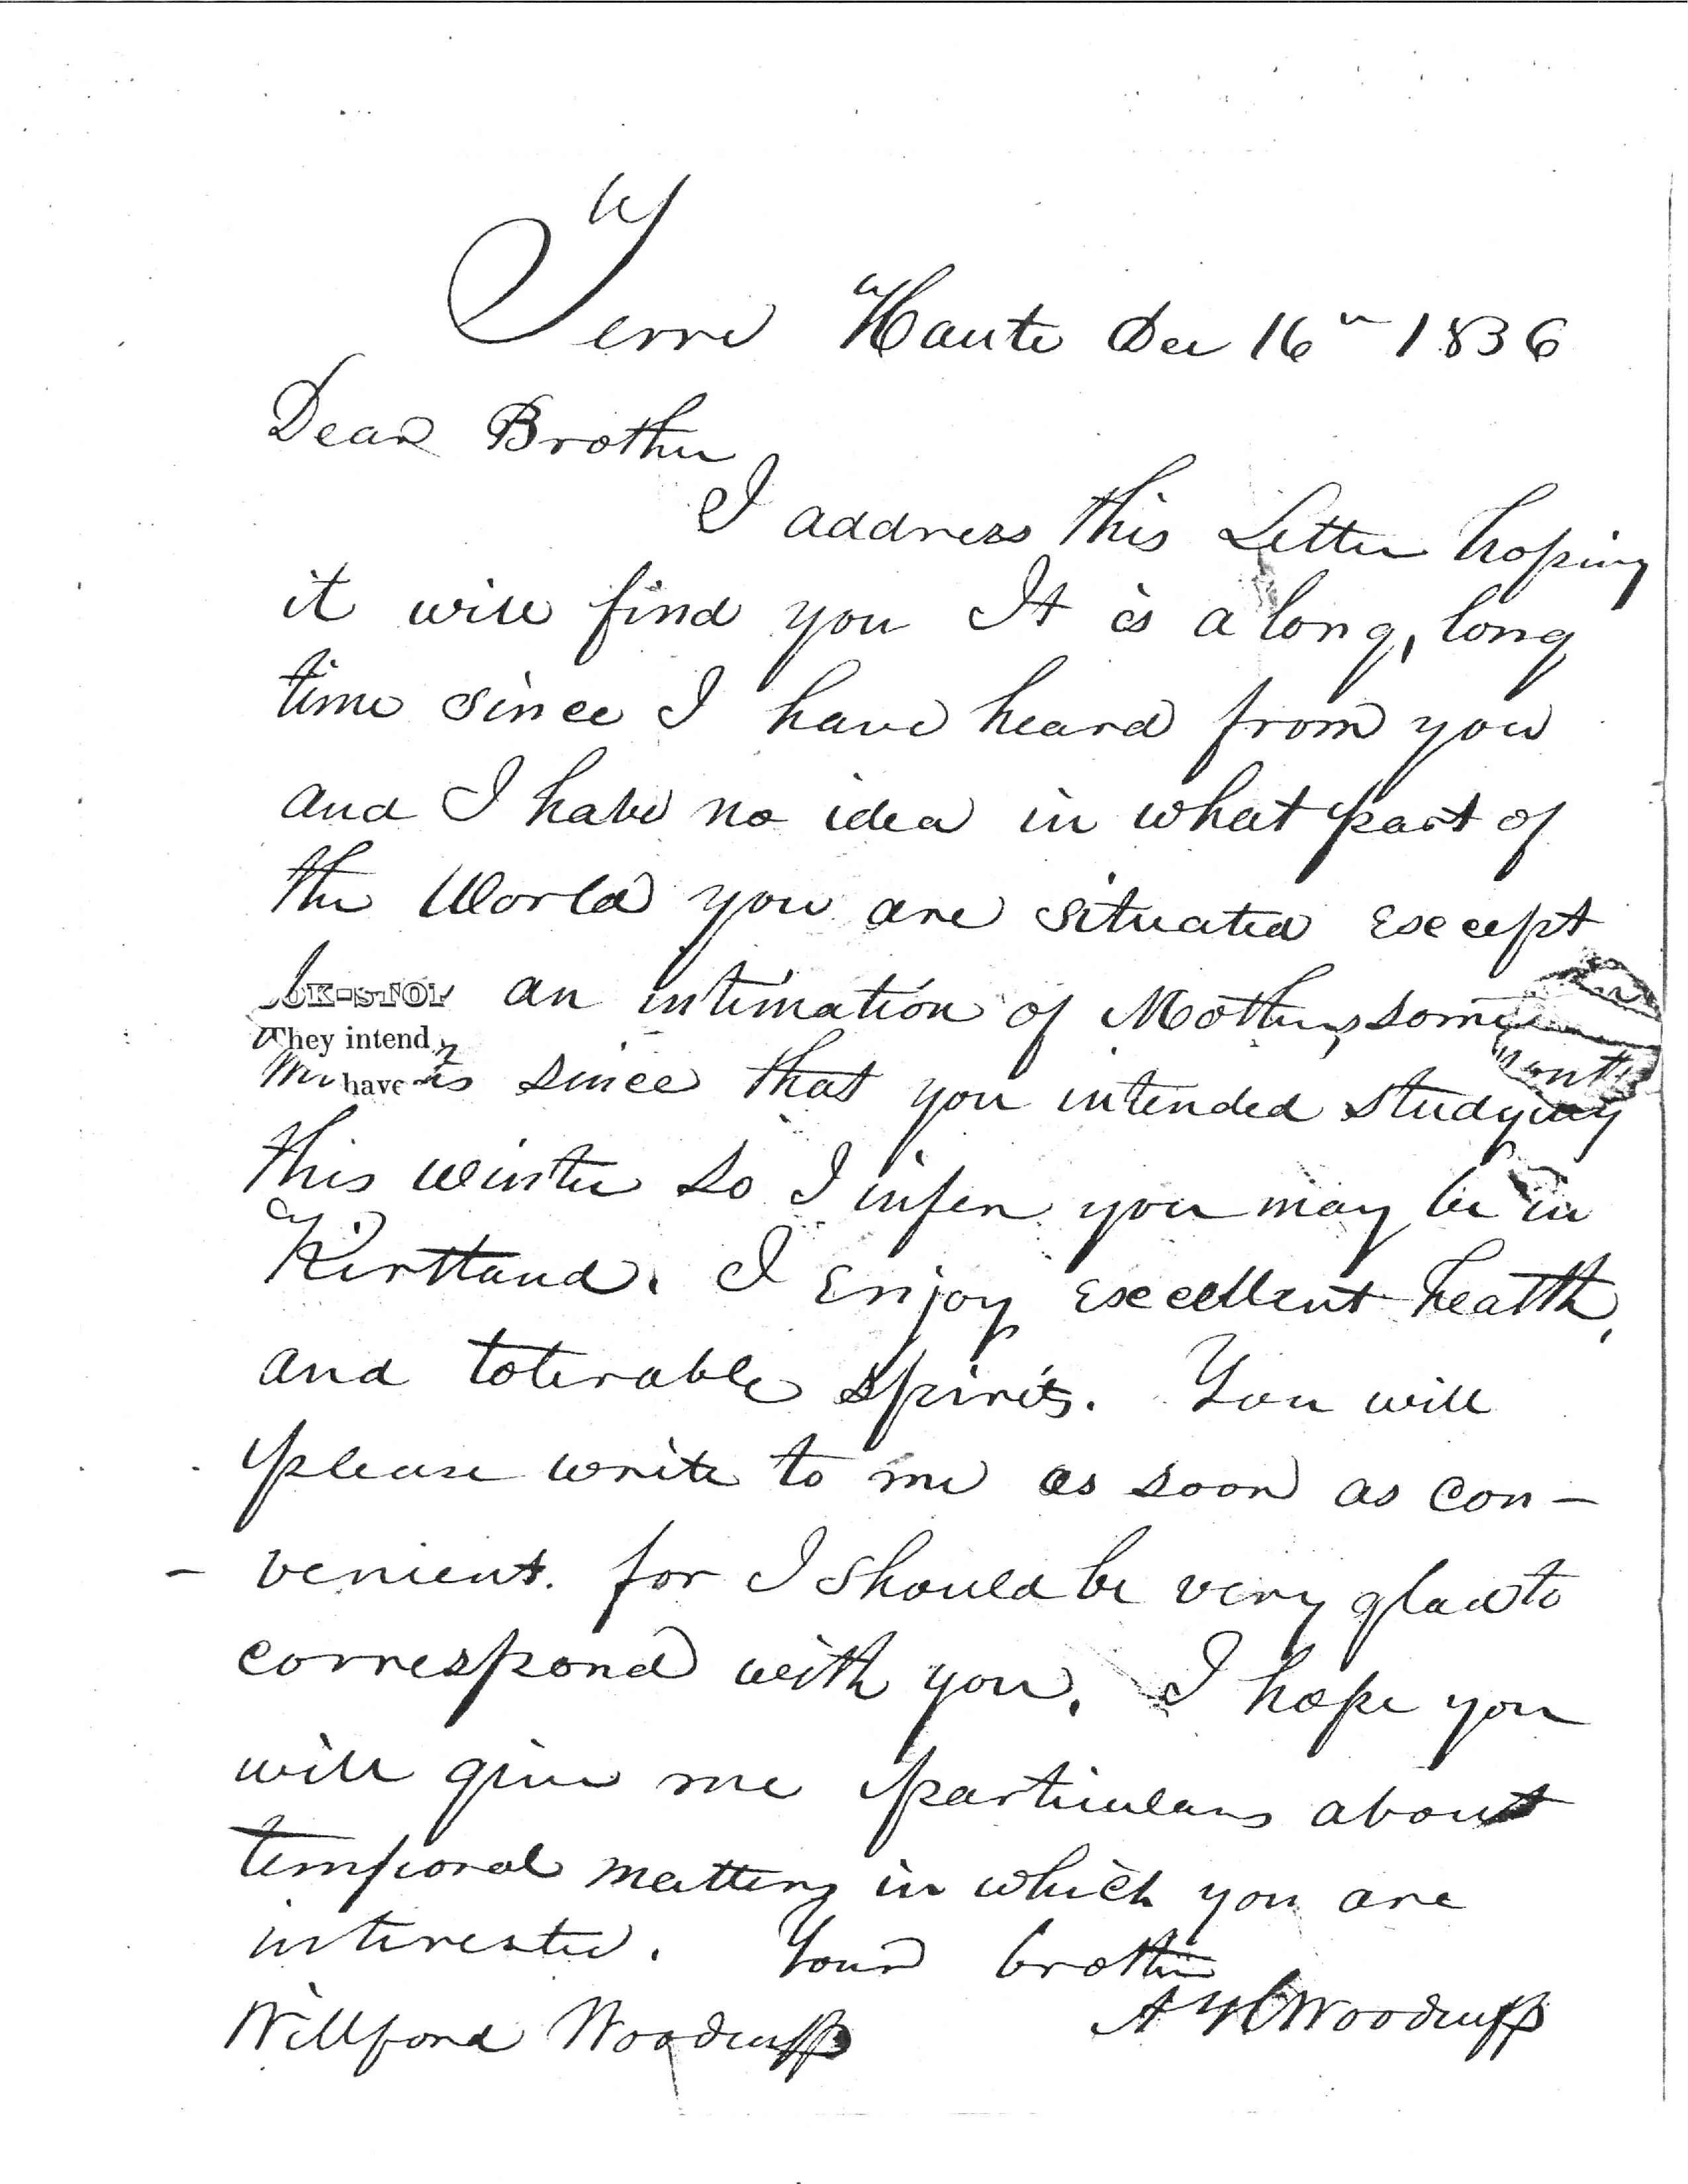 Terre Haute Dec 16th 1836
Dear Brother
I address this Letter hoping
it will find you It is a long, long
time since I have heard from you
and I have no idea in what part of
the World you are situated except
OK-STOR an intimation of Mothers some
They intend
have since that you intended studying
this winter so I infer you may be in
Kirtland. I Enjoy excellent health,
and tolerable spirits. You will
please write to me as soon as con-
-venient. for I should be very glad to
correspond with you. I hope you
will give me particulars about
temporal matters in which you are
interested. Your brother
Willford Woodruff A H Woodruff